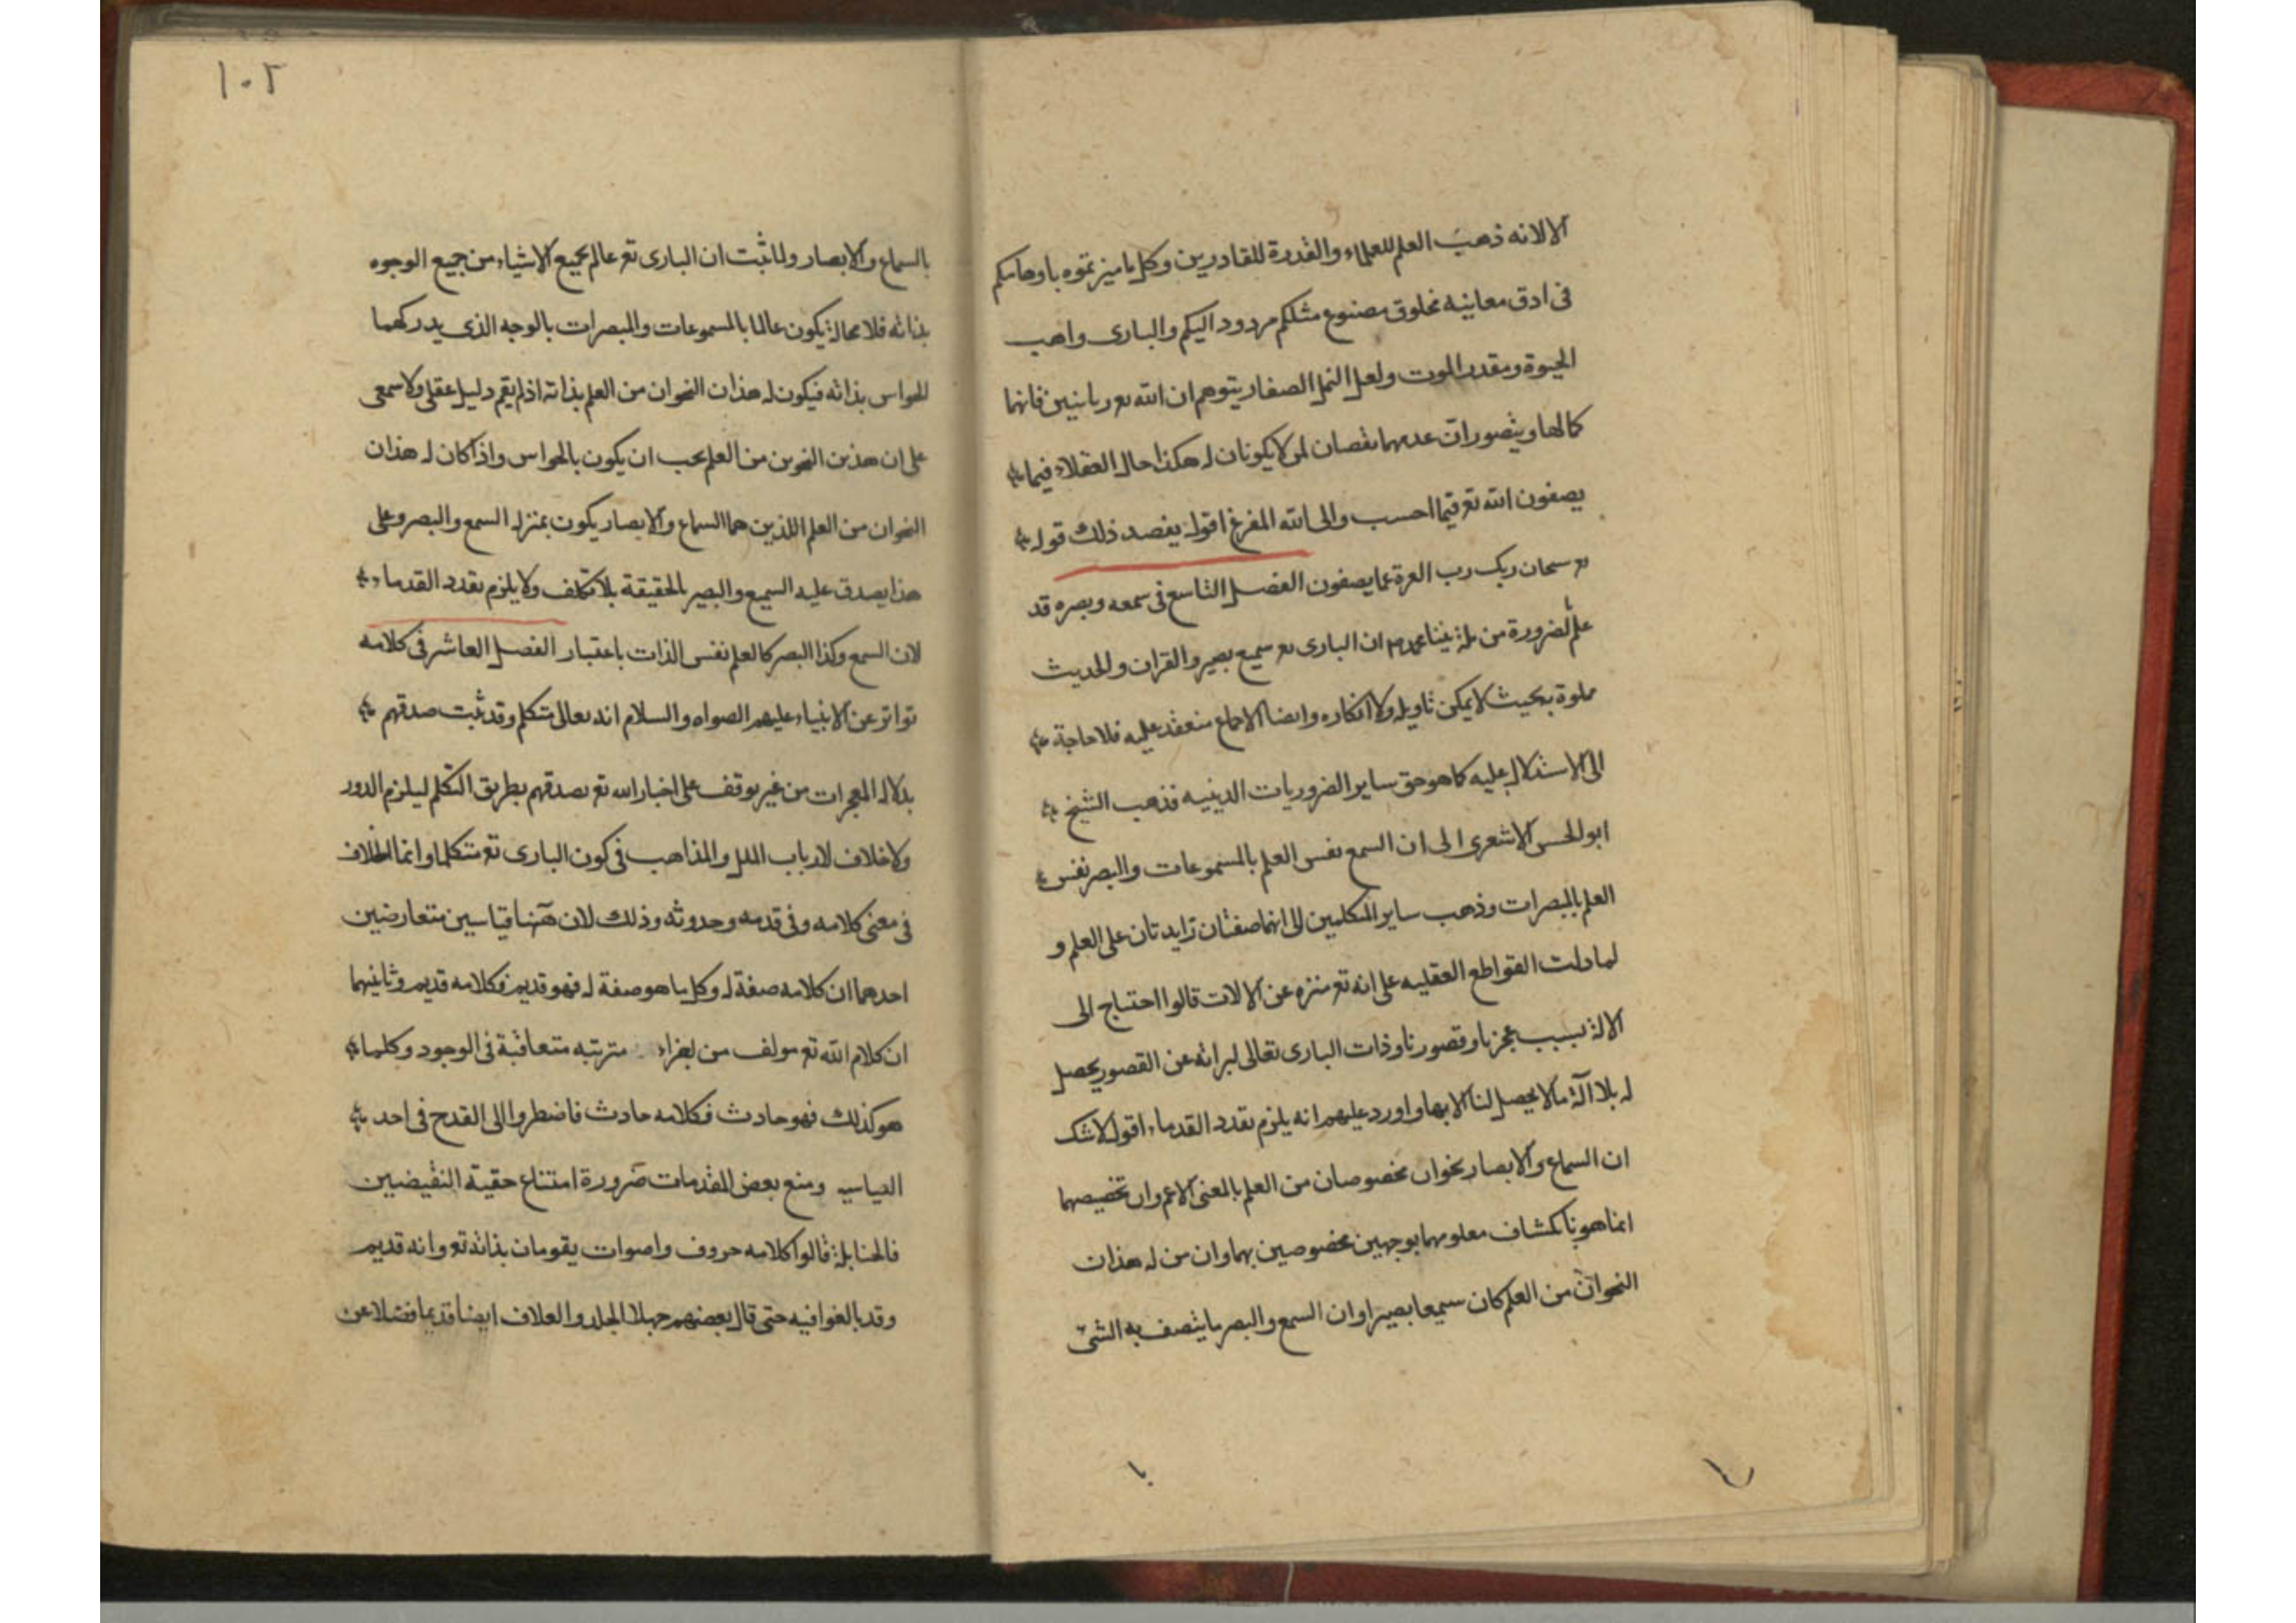 الا لانه ذهب العلم للعلماء والقدرة للقادرين وكل ما ميزتموه باوهامكم
فى ادق معانيه مخلوق مصنوع مثلكم مردود اليكم والبارى واهب
الحيوة ومقدر الموت ولعل النمل الصغار يتوهم ان الله تع زبانيين فانهما
كمالها ويتصور ان عدمهما نقصان لمن لا يكونان له هكذا حال العقلاء فيما
يصفون الله تع فيما احسب والى الله المفزع اقول يفصد ذلك قوله
تع سبحان ربك رب العزة عما يصفون الفصل التاسع فى سمعه وبصره قد
علم بالضرورة من ملة نبينا محمد ص ان البارى تع سميع بصير والقران والحديث
مملوة بحيث لا يمكن تاويله ولا انكاره وايضا الاجماع منعقد عليه فلا حاجة
الى الاستدلال عليه كما هو حق ساير الضروريات الدينيه فذهب الشيخ
ابو الحسن الاشعرى الى ان السمع نفس العلم بالمسموعات والبصر نفس
العلم بالمبصرات وذهب ساير المتكلمين الى انهما صفتان زايدتان على العلم و
لما دلت القواطع العقليه على انه تع منزه عن الالات قالوا احتياج الى
الالة بسبب عجزنا وقصورنا وذات البارى تعالى لبرائه عن القصور يحصل
له بلا آلة ما لا يحصل لنا الا بها واورد عليهم انه يلزم تعدد القدماء اقول لا شك
ان السماع والابصار نحوان مخصوصان من العلم بالمعنى الاعم وان تخصيصهما
انما هو بانكشاف معلومهما بوجهين مخصوصين بهما وان من له هذان
النحوان من العلم كان سميعا بصيرا وان السمع والبصر ما يتصف به الشئ
١٠٢
بالسماع والابصار ولما ثبت ان البارى تع عالم بجميع الاشياء من جميع الوجوه
بذاته فلا محالة يكون عالما بالمسموعات والمبصرات بالوجه الذى يدركهما
الحواس بذاته فيكون له هذان النحوان من العلم بذاته اذ لم يقم دليل عقلى ولا سمعى
على ان هذين النحوين من العلم يجب ان يكون بالحواس واذا كان له هذان
النحوان من العلم اللذين هما السماع والابصار يكون بمنزلة السمع والبصر وعلى
هذا يصدق عليه السميع والبصير بالحقيقة بلا تكلف ولا يلزم تعدد القدماء
لان السمع وكذا البصر كالعلم نفس الذات باعتبار الفصل العاشر فى كلامه
تواتر عن الانبياء عليهم الصواه والسلام انه تعالى متكلم وقد ثبت صدقهم
بدلالة المعجزات من غير توقف على اخبار الله تع بصدقهم بطريق التكلم ليلزم الدور
ولا خلاف لارباب الملل والمذاهب فى كون البارى تع متكلما وانما الخلاف
فى معنى كلامه وفى قدمه وحدوثه وذلك لان ههنا قياسين متعارضين
احدهما ان كلامه صفة له وكل ما هو صفة له فهو قديم فكلامه قديم وثانيهما
ان كلام الله تع مولف من اجزاء مترتبه متعاقبة فى الوجود وكلما
هو كذلك فهو حادث فكلامه حادث فاضطروا الى القدح فى احد
القياسين ومنع بعض المقدمات ضرورة امتناع حقية النقيضين
فالحنابلة قالوا كلامه حروف واصوات يقومان بذاته تع وانه قديم
وقد بالغوا فيه حتى قال بعضهم جهلا الجلد والغلاف ايضا قديما فضلا عن